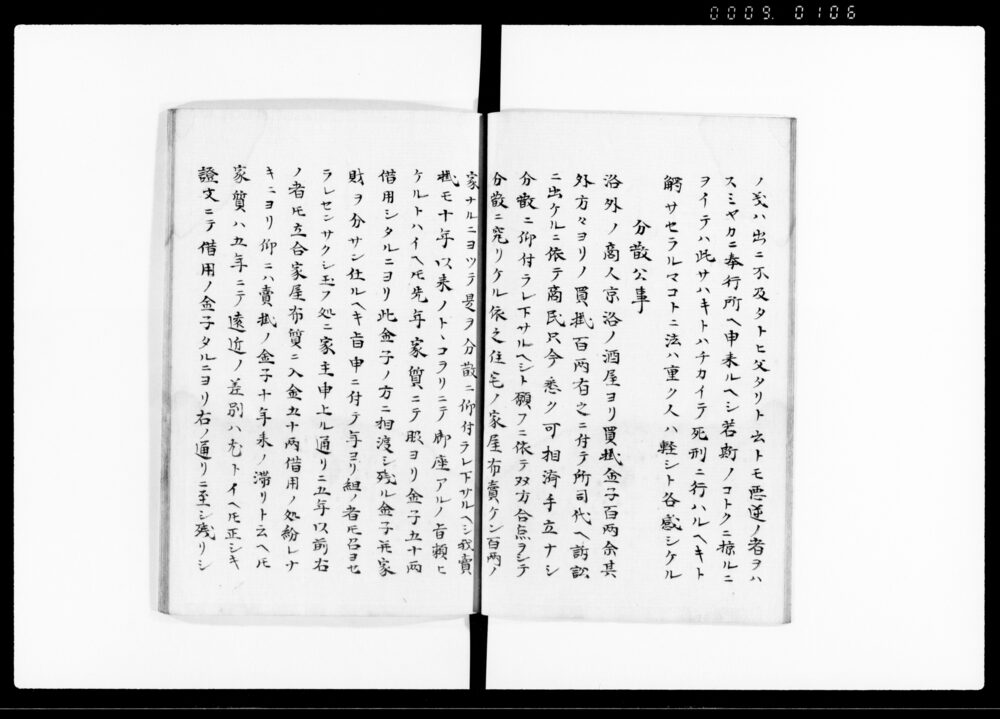 0009. 0106
ノ義ハ出ニ不及タトヒ父タリト云トモ悪逆ノ者ヲハ
スミヤカニ奉行所ヘ申来ルヘシ若斯ノコトクニ掠ルニ
ヲイテハ此サハキトハチカイテ死刑ニ行ハルヘキト
觸サセラルマコトニ法ハ重ク人ハ軽シト各感シケル
分散公事
洛外ノ商人京洛ノ酒屋ヨリ買掛金子百両余其
外方々ヨリノ買掛百両有之ニ付テ所司代ヘ訴訟
ニ出ケルニ依テ商民只今悉ク可相済手立ナシ
分散ニ仰付ラレ下サルヘシト願フニ依テ双方合点ヲシテ
分散ニ究リケル依之住宅ノ家屋布賣ケン百両ノ
家ナルニヨツテ是ヲ分散ニ仰付ラレ下サルヘシ我賣
掛モ十年以来ノトヽコヲリニテ御座アルノ旨頼ヒ
ケルトハイヘ𪜈先年家質ニテ脇ヨリ金子五十両
借用シタルニヨリ此金子ノ方ニ相渡シ残ル金子并家
財ヲ分サン仕ルヘキ旨申ニ付テ与ヨリ組ノ者𪜈召ヨセ
ラレセンサクシ玉フ処ニ家主申上ル通リニ五年以前右
ノ者𪜈立合家屋布質ニ入金五十両借用ノ処紛レナ
キニヨリ仰ニハ賣掛ノ金子十年来ノ滞リト云ヘ𪜈
家質ハ五年ニテ遠近ノ差別ハ尤トイヘ𪜈正シキ
證文ニテ借用ノ金子タルニヨリ右ノ通リニ至シ残リシ